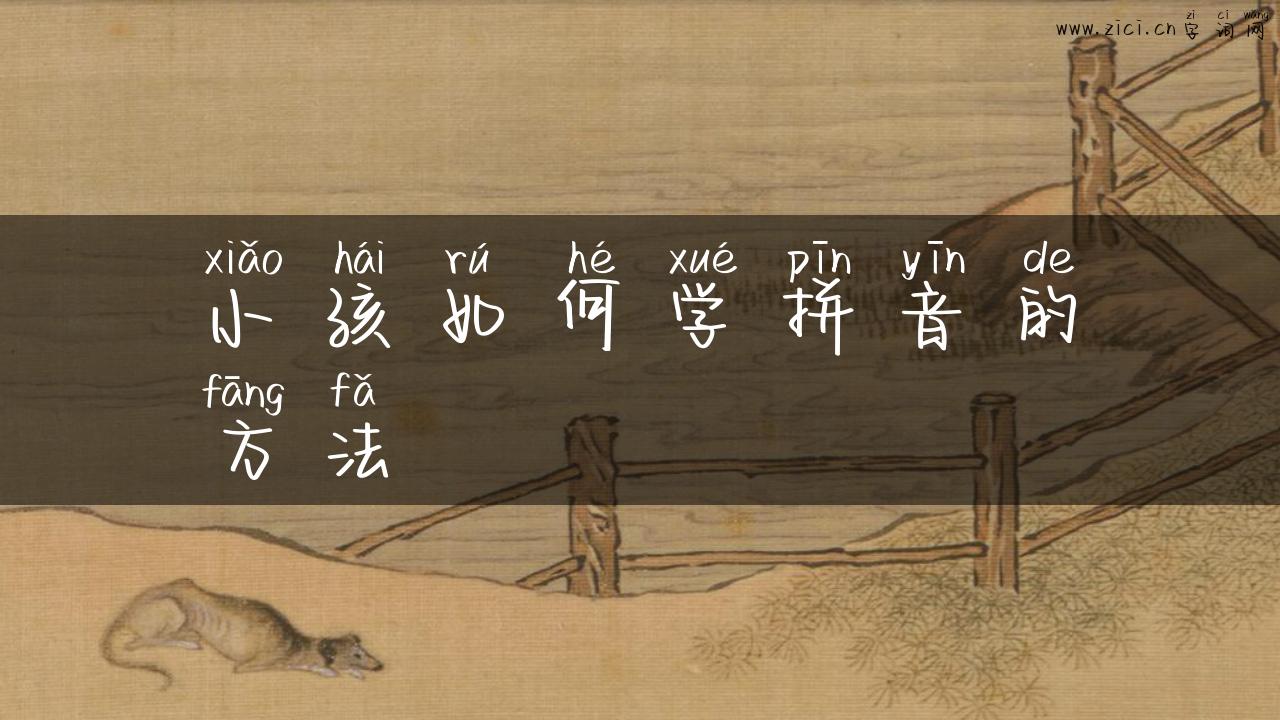 zi ci wang
www.zici.cn 字词网
xiǎo hái rú hé xué pīn yīn de
小孩如何学拼音的
fāng fǎ
方法